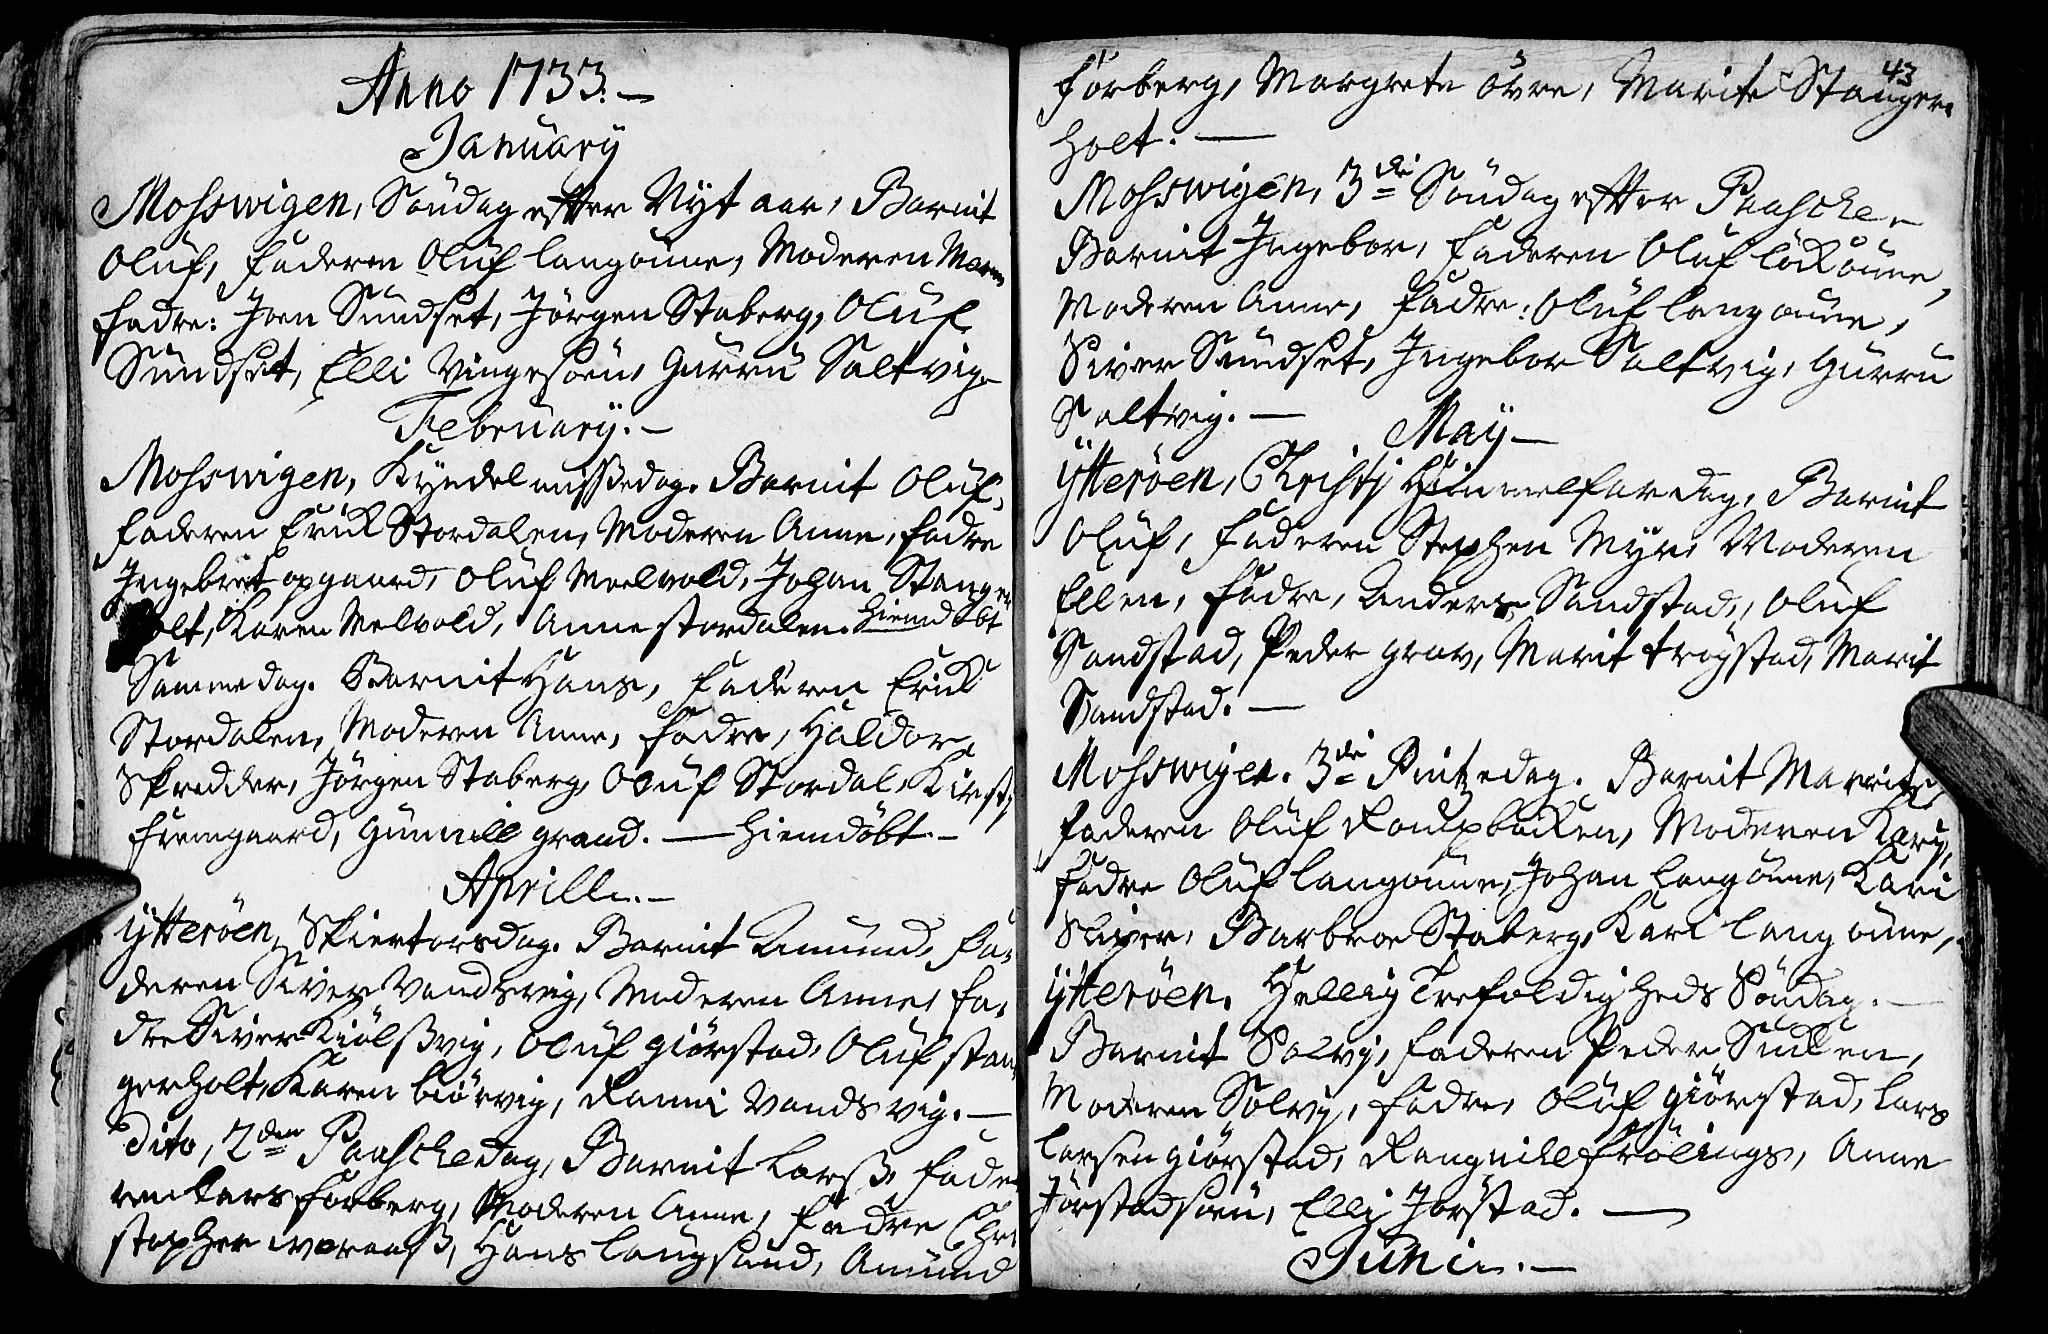 Anno 1733.
January
Mosswigen, Søndag effter Nyt aar, Barnit
Oluf, faderen Oluf langømne, Moderen Maren
fadre: Joen Sundset, Jørgen Staberg, Oluf
Sundset, Elli Vingesøen, Gurru Saltvig
February.
Mosswigen, Kyndelmissedag. Barnit Oluf,
faderen Erick Stordalen, Moderen Anne, fadre
Ingebret opgaard, Oluf Melvold, Johan Stanger
holt, Karen Melvold, Anne stordalen. hiemd øbt
Samme dag. Barnit Hans, faderen Erick
Stordalen, Moderen Anne, fadre, Haldor
Skredder, Jørgen Staberg, Oluf Stordal, Kirsti
fremgaard, Gunnill grand. — hiemdøbt. —
Aprill. —
Ytterøen, Skiertorsdag. Barnit Amund, fa-
deren Siver Vandsvig, Moderen Anne, fa-
dre Siver Kiølßvig, Oluf giørstad, Oluf stan-
gerholt, Karen biørvig, Ranni Vandsvig. —
Dito, 2den Paaschedag, Barnit Larß, fade-
ren Lars forberg, Moderen Anne, fadre Chri
stopher woraaß, Hans langsand, Amund
43
forberg, Margrete øvre, Marite Stanger-
holt. —
Mosswigen, 3die Søndag effter Paasche,
Barnit Ingebor, faderen Oluf løckømne,
Moderen Anne, fadre: Oluf langømne,
Siver Sundset, Ingebor Saltvig, Gurru
Saltvig. —
May —
Ytterøen, Christi Himmelfardag, Barnit
Oluf, faderen Stephen Myr, Moderen
Ellen, fadre, Anders Sandstad, Oluf
Sandstad, Peder grav, Marit trøgstad, Marit
Sandstad. —
Mosswigen. 3die Pintzedag. Barnit Marrit,
faderen Oluf Rompbacken, Moderen Kary,
fadre Oluf langømne, Johan langømne, Kari
Barbroe Staberg, Kari langømne,
Ytterøen. Hellig Trefoldigheds Søndag. —
Barnit Solvy, faderen Peder Sulken,
Moderen Solvy, fadre, Oluf giørstad, Lars
larsen giørstad, Rangnill frølings, Anne
Jørstadsøen, Elli Jørstad. —
Juni. —